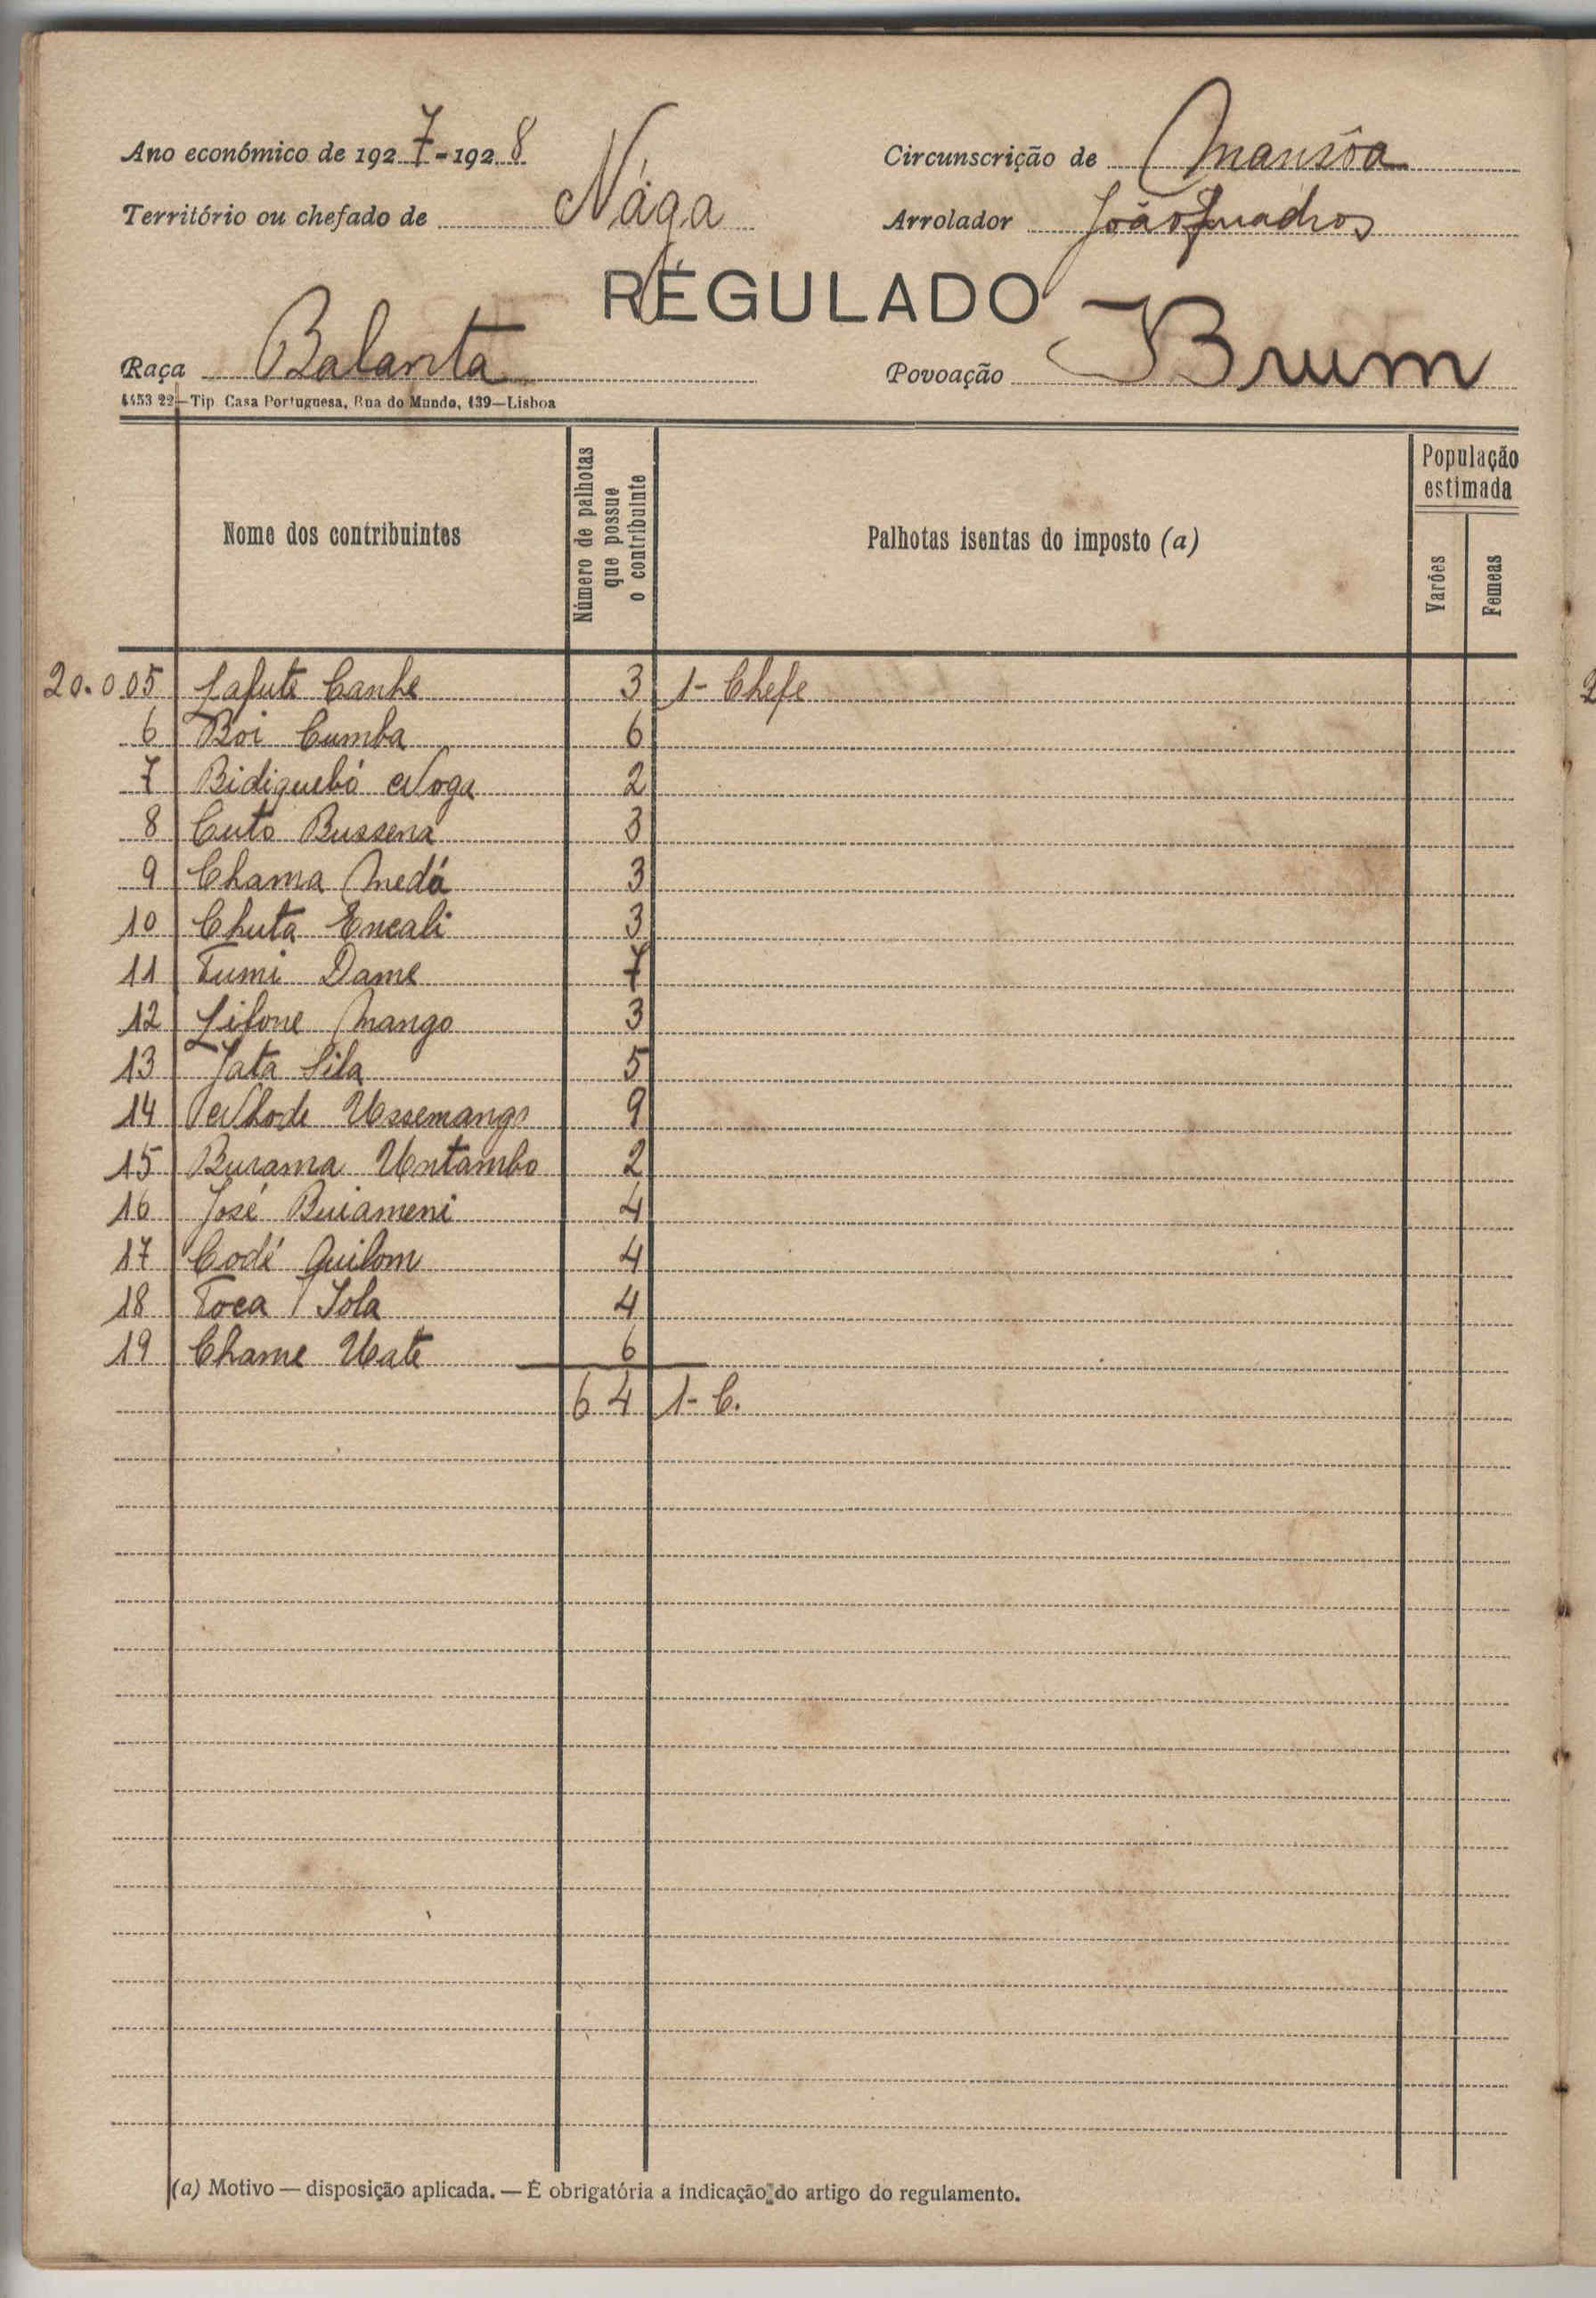 Ano económico de 1927-1928
Circunscrição de Mansôa
Território ou chefado de Nága
Arrolador João Quadros
RÉGULADO
Raça Balanta
Povoação Brum
4453 22—Tip. Casa Portuguesa, Rua do Mundo, 139—Lisboa
Nome dos contribuintes
Número de palhotas que possue o contribuinte
Palhotas isentas do imposto (a)
População estimada
Varões
Femeas
20.005 Lafute Canhe 3 1- Chefe
6 Boi Cumba 6
7 Bidiguebó Noga 2
8 Cuto Bussena 3
9 Chama Medá 3
10 Chuta Encali 3
11 Tumi Dame 7
12 Lifone Mango 3
13 Jata Sila 5
14 Nhode Ussemango 9
15 Burama Untambo 2
16 José Buiameni 4
17 Codé Quilom 4
18 Toca Iola 4
19 Chame Uate 6
64 1- C.
(a) Motivo — disposição aplicada. — É obrigatória a indicação do artigo do regulamento.